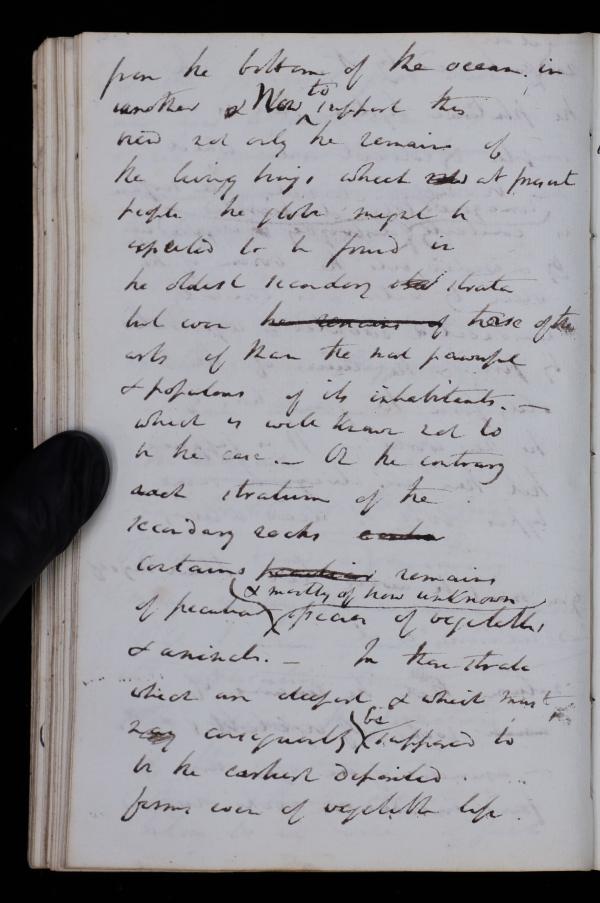 from the bottom of the ocean, in
another & Now to support this
view not only the remains of
the living beings which at present
people the globe might be
expected to be found in
the oldest secondary strata
but even the remains of those of the
arts of Man the most powerful
& populous of its inhabitants. —
which is well known not to
be the case. — On the contrary
each stratum of the
secondary rocks
contains peculiar remains
& mostly of now unknown
of peculiar species of vegetables
& animals. — In those strata
which are deepest & which must
consequently be supposed to
be the earliest deposited
forms even of vegetable life